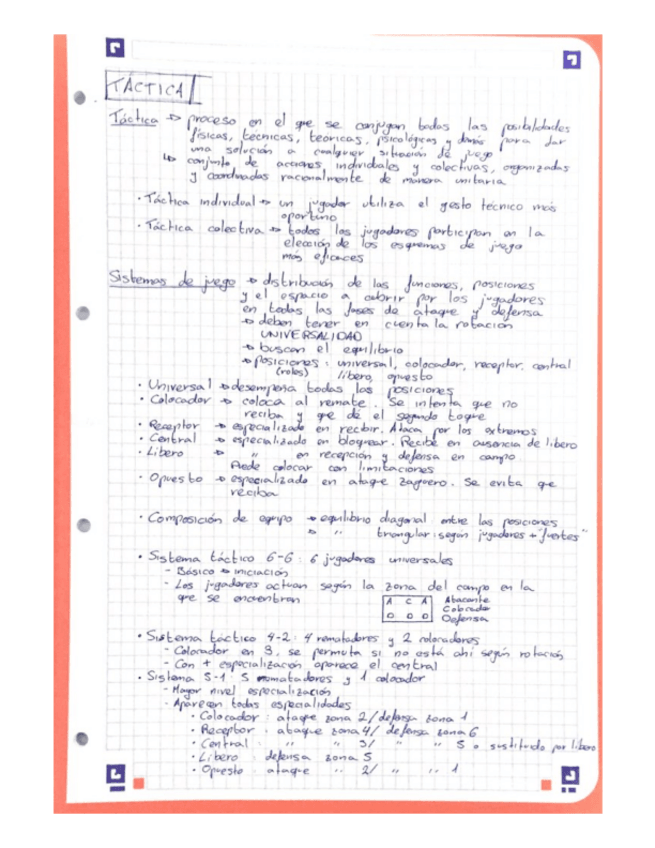 TÁCTICA
Táctica → proceso en el que se conjugan todas las posibilidades
físicas, técnicas, teóricas, psicológicas y demás para dar
una solución a cualquier situación de juego
↳ conjunto de acciones individuales y colectivas, organizadas
y coordinadas racionalmente de manera unitaria
· Táctica individual → un jugador utiliza el gesto técnico más
oportuno
· Táctica colectiva → todos los jugadores participan en la
elección de los esquemas de juego
más eficaces
Sistemas de juego → distribución de las funciones, posiciones
y el espacio a cubrir por los jugadores
en todas las fases de ataque y defensa
→ deben tener en cuenta la rotación
UNIVERSALIDAD
→ buscan el equilibrio
→ posiciones: universal, colocador, receptor, central
(roles) líbero, opuesto
· Universal → desempeña todas las posiciones
· Colocador → coloca al remate. Se intenta que no
reciba y que dé el segundo toque
· Receptor → especializado en recibir. Ataca por los extremos
· Central → especializado en bloquear. Recibe en ausencia de libero
· Libero → " en recepción y defensa en campo
Puede colocar con limitaciones
· Opuesto → especializado en ataque zaguero. Se evita que
reciba
· Composición de equipo → equilibrio diagonal entre las posiciones
→ " triangular: según jugadores + "fuertes"
· Sistema táctico 6-6: 6 jugadores universales
- Básico → iniciación
- Los jugadores actuan según la zona del campo en la
que se encuentren
A C A
D D D
Atacante
Colocador
Defensa
· Sistema táctico 4-2: 4 rematadores y 2 colocadores
- Colocador en 3, se permuta si no está ahí según rotación
- Con + especialización aparece el central
· Sistema 5-1: 5 rematadores y 1 colocador
- Mayor nivel especialización
- Aparecen todas especialidades
· Colocador: ataque zona 2/ defensa zona 1
· Receptor: ataque zona 4/ defensa zona 6
· Central: " " 3/ " " 5 o sustituido por libero
· Libero: defensa zona 5
· Opuesto: ataque " 2/ " " 1